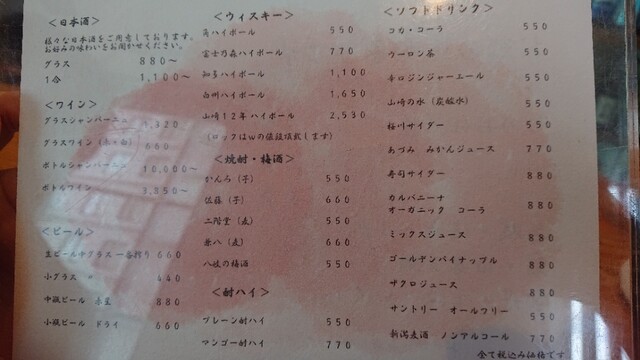 ＜日本酒＞
様々な日本酒をご用意しております。
お好みの味わいをお聞かせください。
グラス 880～
1合 1,100～
＜ワイン＞
グラスシャンパーニュ 1,320
グラスワイン（赤・白） 660
ボトルシャンパーニュ 10,000～
ボトルワイン 3,850～
＜ビール＞
生ビール中グラス 一番搾り 660
小グラス 〃 440
中瓶ビール 赤星 880
小瓶ビール ドライ 660
＜ウィスキー＞
角ハイボール 550
富士乃森ハイボール 770
知多ハイボール 1,100
白州ハイボール 1,650
山崎12年ハイボール 2,530
（ロックはWの値段頂戴します）
＜焼酎・梅酒＞
かんろ（芋） 550
佐藤（芋） 660
二階堂（麦） 550
兼八（麦） 660
八岐の梅酒 550
＜酎ハイ＞
プレーン酎ハイ 550
マンゴー酎ハイ 770
＜ソフトドリンク＞
コカ・コーラ 550
ウーロン茶 550
辛口ジンジャーエール 550
山崎の水（炭酸水） 550
桜川サイダー 550
あづみ みかんジュース 770
寿司サイダー 880
カルバニーナ
オーガニック コーラ 880
ミックスジュース 880
ゴールデンパイナップル 880
ザクロジュース 880
サントリー オールフリー 550
新潟麦酒 ノンアルコール 770
全て税込み価格です